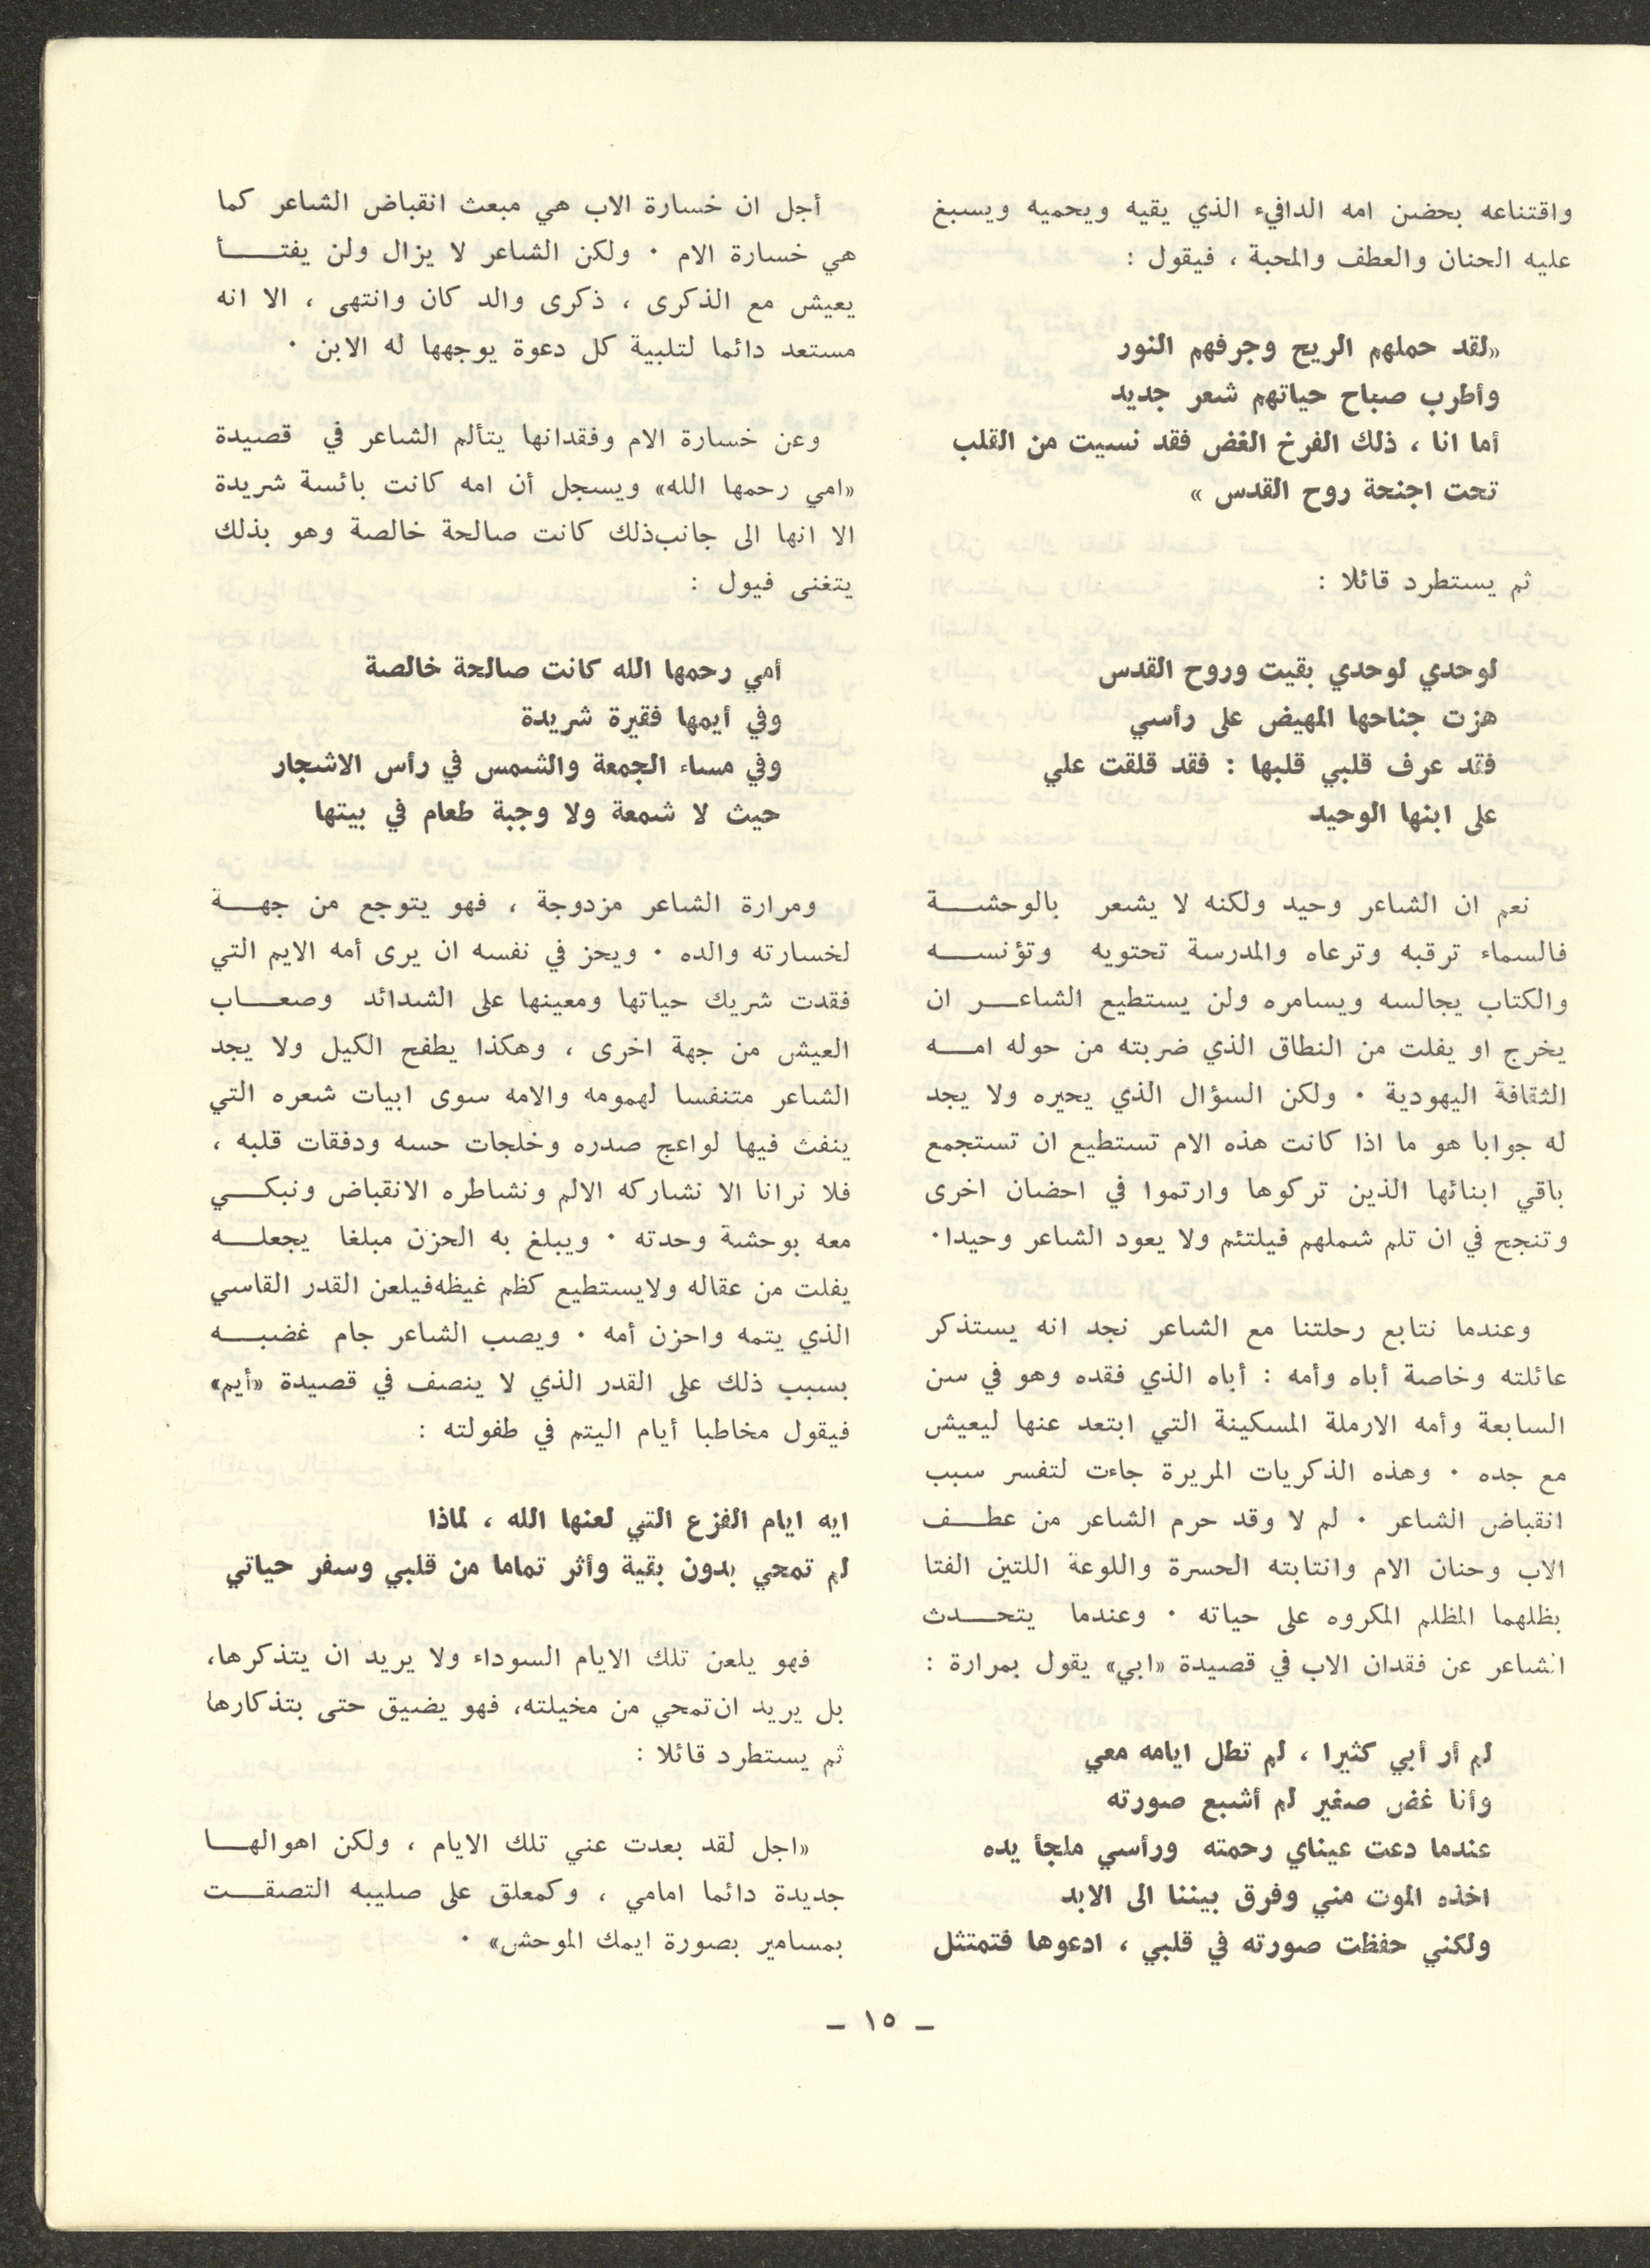 واقتناعه بحضن امه الدافيء الذي يقيه ويحميه ويسبغ
عليه الحنان والعطف والمحبة ، فيقول :
«لقد حملهم الريح وجرفهم النور
وأطرب صباح حياتهم شعر جديد
أما انا ، ذلك الفرخ الغض فقد نسيت من القلب
تحت اجنحة روح القدس »
ثم يستطرد قائلا :
لوحدي لوحدي بقيت وروح القدس
هزت جناحها المهيض على رأسي
فقد عرف قلبي قلبها : فقد قلقت علي
على ابنها الوحيد
نعم ان الشاعر وحيد ولكنه لا يشعر بالوحشة
فالسماء ترقبه وترعاه والمدرسة تحتويه وتؤنسه
والكتاب يجالسه ويسامره ولن يستطيع الشاعر ان
يخرج او يفلت من النطاق الذي ضربته من حوله امه
الثقافة اليهودية ٠ ولكن السؤال الذي يحيره ولا يجد
له جوابا هو ما اذا كانت هذه الام تستطيع ان تستجمع
باقي ابنائها الذين تركوها وارتموا في احضان اخرى
وتنجح في ان تلم شملهم فيلتئم ولا يعود الشاعر وحيدا٠
وعندما نتابع رحلتنا مع الشاعر نجد انه يستذكر
عائلته وخاصة أباه وأمه : أباه الذي فقده وهو في سن
السابعة وأمه الارملة المسكينة التي ابتعد عنها ليعيش
مع جده ٠ وهذه الذكريات المريرة جاءت لتفسر سبب
انقباض الشاعر ٠ لم لا وقد حرم الشاعر من عطف
الاب وحنان الام وانتابته الحسرة واللوعة اللتين الفتا
بظلهما المظلم المكروه على حياته ٠ وعندما يتحدث
الشاعر عن فقدان الاب في قصيدة «ابي» يقول بمرارة :
لم أر أبي كثيرا ، لم تطل ايامه معي
وأنا غض صغير لم أشبع صورته
عندما دعت عيناي رحمته ورأسي ملجأ يده
اخذه الموت مني وفرق بيننا الى الابد
ولكني حفظت صورته في قلبي ، ادعوها فتمتثل
أجل ان خسارة الاب هي مبعث انقباض الشاعر كما
هي خسارة الام ٠ ولكن الشاعر لا يزال ولن يفتأ
يعيش مع الذكرى ، ذكرى والد كان وانتهى ، الا انه
مستعد دائما لتلبية كل دعوة يوجهها له الابن ٠
وعن خسارة الام وفقدانها يتألم الشاعر في قصيدة
«امي رحمها الله» ويسجل أن امه كانت بائسة شريدة
الا انها الى جانب ذلك كانت صالحة خالصة وهو بذلك
يتغنى فيول :
أمي رحمها الله كانت صالحة خالصة
وفي أيمها فقيرة شريدة
وفي مساء الجمعة والشمس في رأس الاشجار
حيث لا شمعة ولا وجبة طعام في بيتها
ومرارة الشاعر مزدوجة ، فهو يتوجع من جهة
لخسارته والده ٠ ويحز في نفسه ان يرى أمه الايم التي
فقدت شريك حياتها ومعينها على الشدائد وصعاب
العيش من جهة اخرى ، وهكذا يطفح الكيل ولا يجد
الشاعر متنفسا لهمومه والامه سوى ابيات شعره التي
ينفث فيها لواعج صدره وخلجات حسه ودفقات قلبه ،
فلا نرانا الا نشاركه الالم ونشاطره الانقباض ونبكي
معه بوحشة وحدته ٠ ويبلغ به الحزن مبلغا يجعله
يفلت من عقاله ولايستطيع كظم غيظه فيلعن القدر القاسي
الذي يتمه واحزن أمه ٠ ويصب الشاعر جام غضبه
بسبب ذلك على القدر الذي لا ينصف في قصيدة «أيم»
فيقول مخاطبا أيام اليتم في طفولته :
ايه ايام الفزع التي لعنها الله ، لماذا
لم تمحي بدون بقية وأثر تماما من قلبي وسفر حياتي
فهو يلعن تلك الايام السوداء ولا يريد ان يتذكرها،
بل يريد ان تمحي من مخيلته، فهو يضيق حتى بتذكارها
ثم يستطرد قائلا :
«اجل لقد بعدت عني تلك الايام ، ولكن اهوالها
جديدة دائما امامي ، وكمعلق على صليبه التصقت
بمسامير بصورة ايمك الموحش» ٠
ـ ١٥ ـ